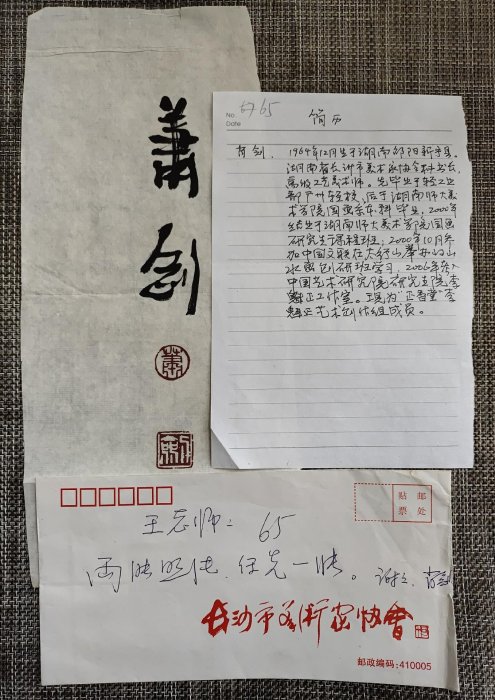 萧
剑
萧
剑
No. 65
Date
简历
萧剑，1964年12月生于湖南邵阳新宁县。
湖南省长沙市美术家协会秘书长，
高级工艺美术师。先毕业于轻工业
部广州轻校，后于湖南师大美
术学院国画系本科毕业，2000年
结业于湖南师大美术学院国画
研究生课程班，2000年10月参
加中国文联在太行山举办的山
水画创研班学习，2006年入
中国艺术研究院研究生院李
魁正工作室。现为“正香堂”李
魁正艺术创作组成员。
贴 邮
票 处
王老师：65
两张照片，任选一张。谢谢、萧剑
长沙市艺术家协会
邮政编码：410005